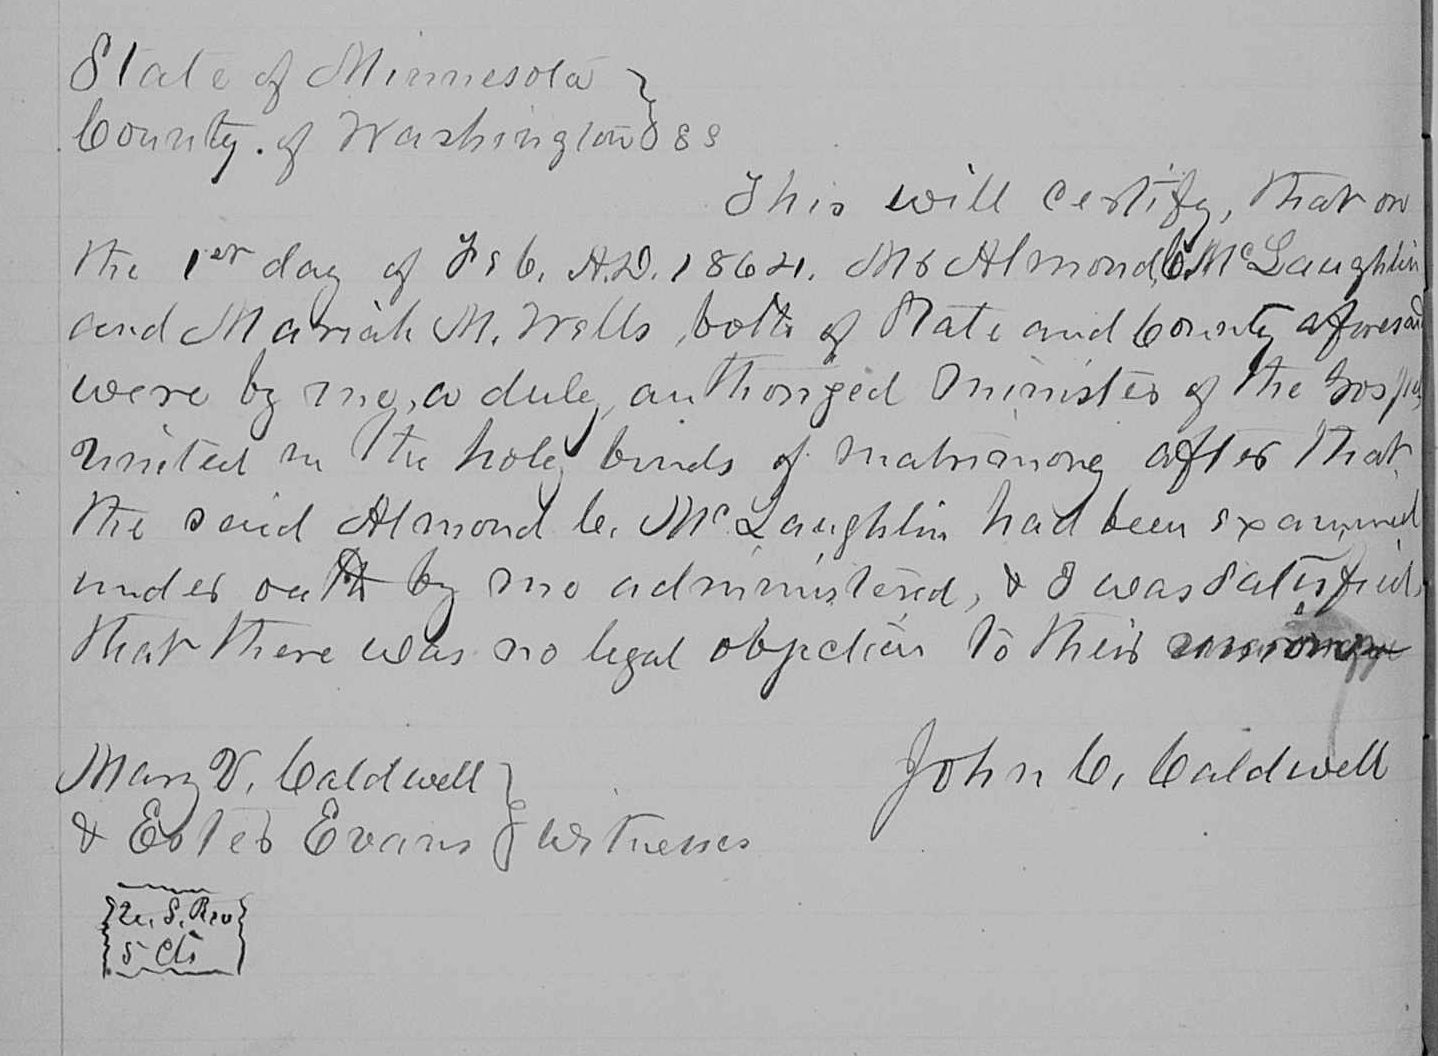 State of Minnesota }
County. of Washington } SS
This will certify, that on
the 1st day of Feb. A.D. 1864. Mr Almond C. McLaughlin
and Mariah M. Wells, both of State and County aforesaid
were by me, a duly authorized minister of the Gospel,
united in the holy bonds of matrimony after that
the said Almond C. McLaughlin had been examined
under oath by me administered, & I was satisfied,
that there was no legal objection to their
Mary V. Caldwell }
John C. Caldwell
& Ester Evans } Witnesses
U. S. Rev
5 Cts